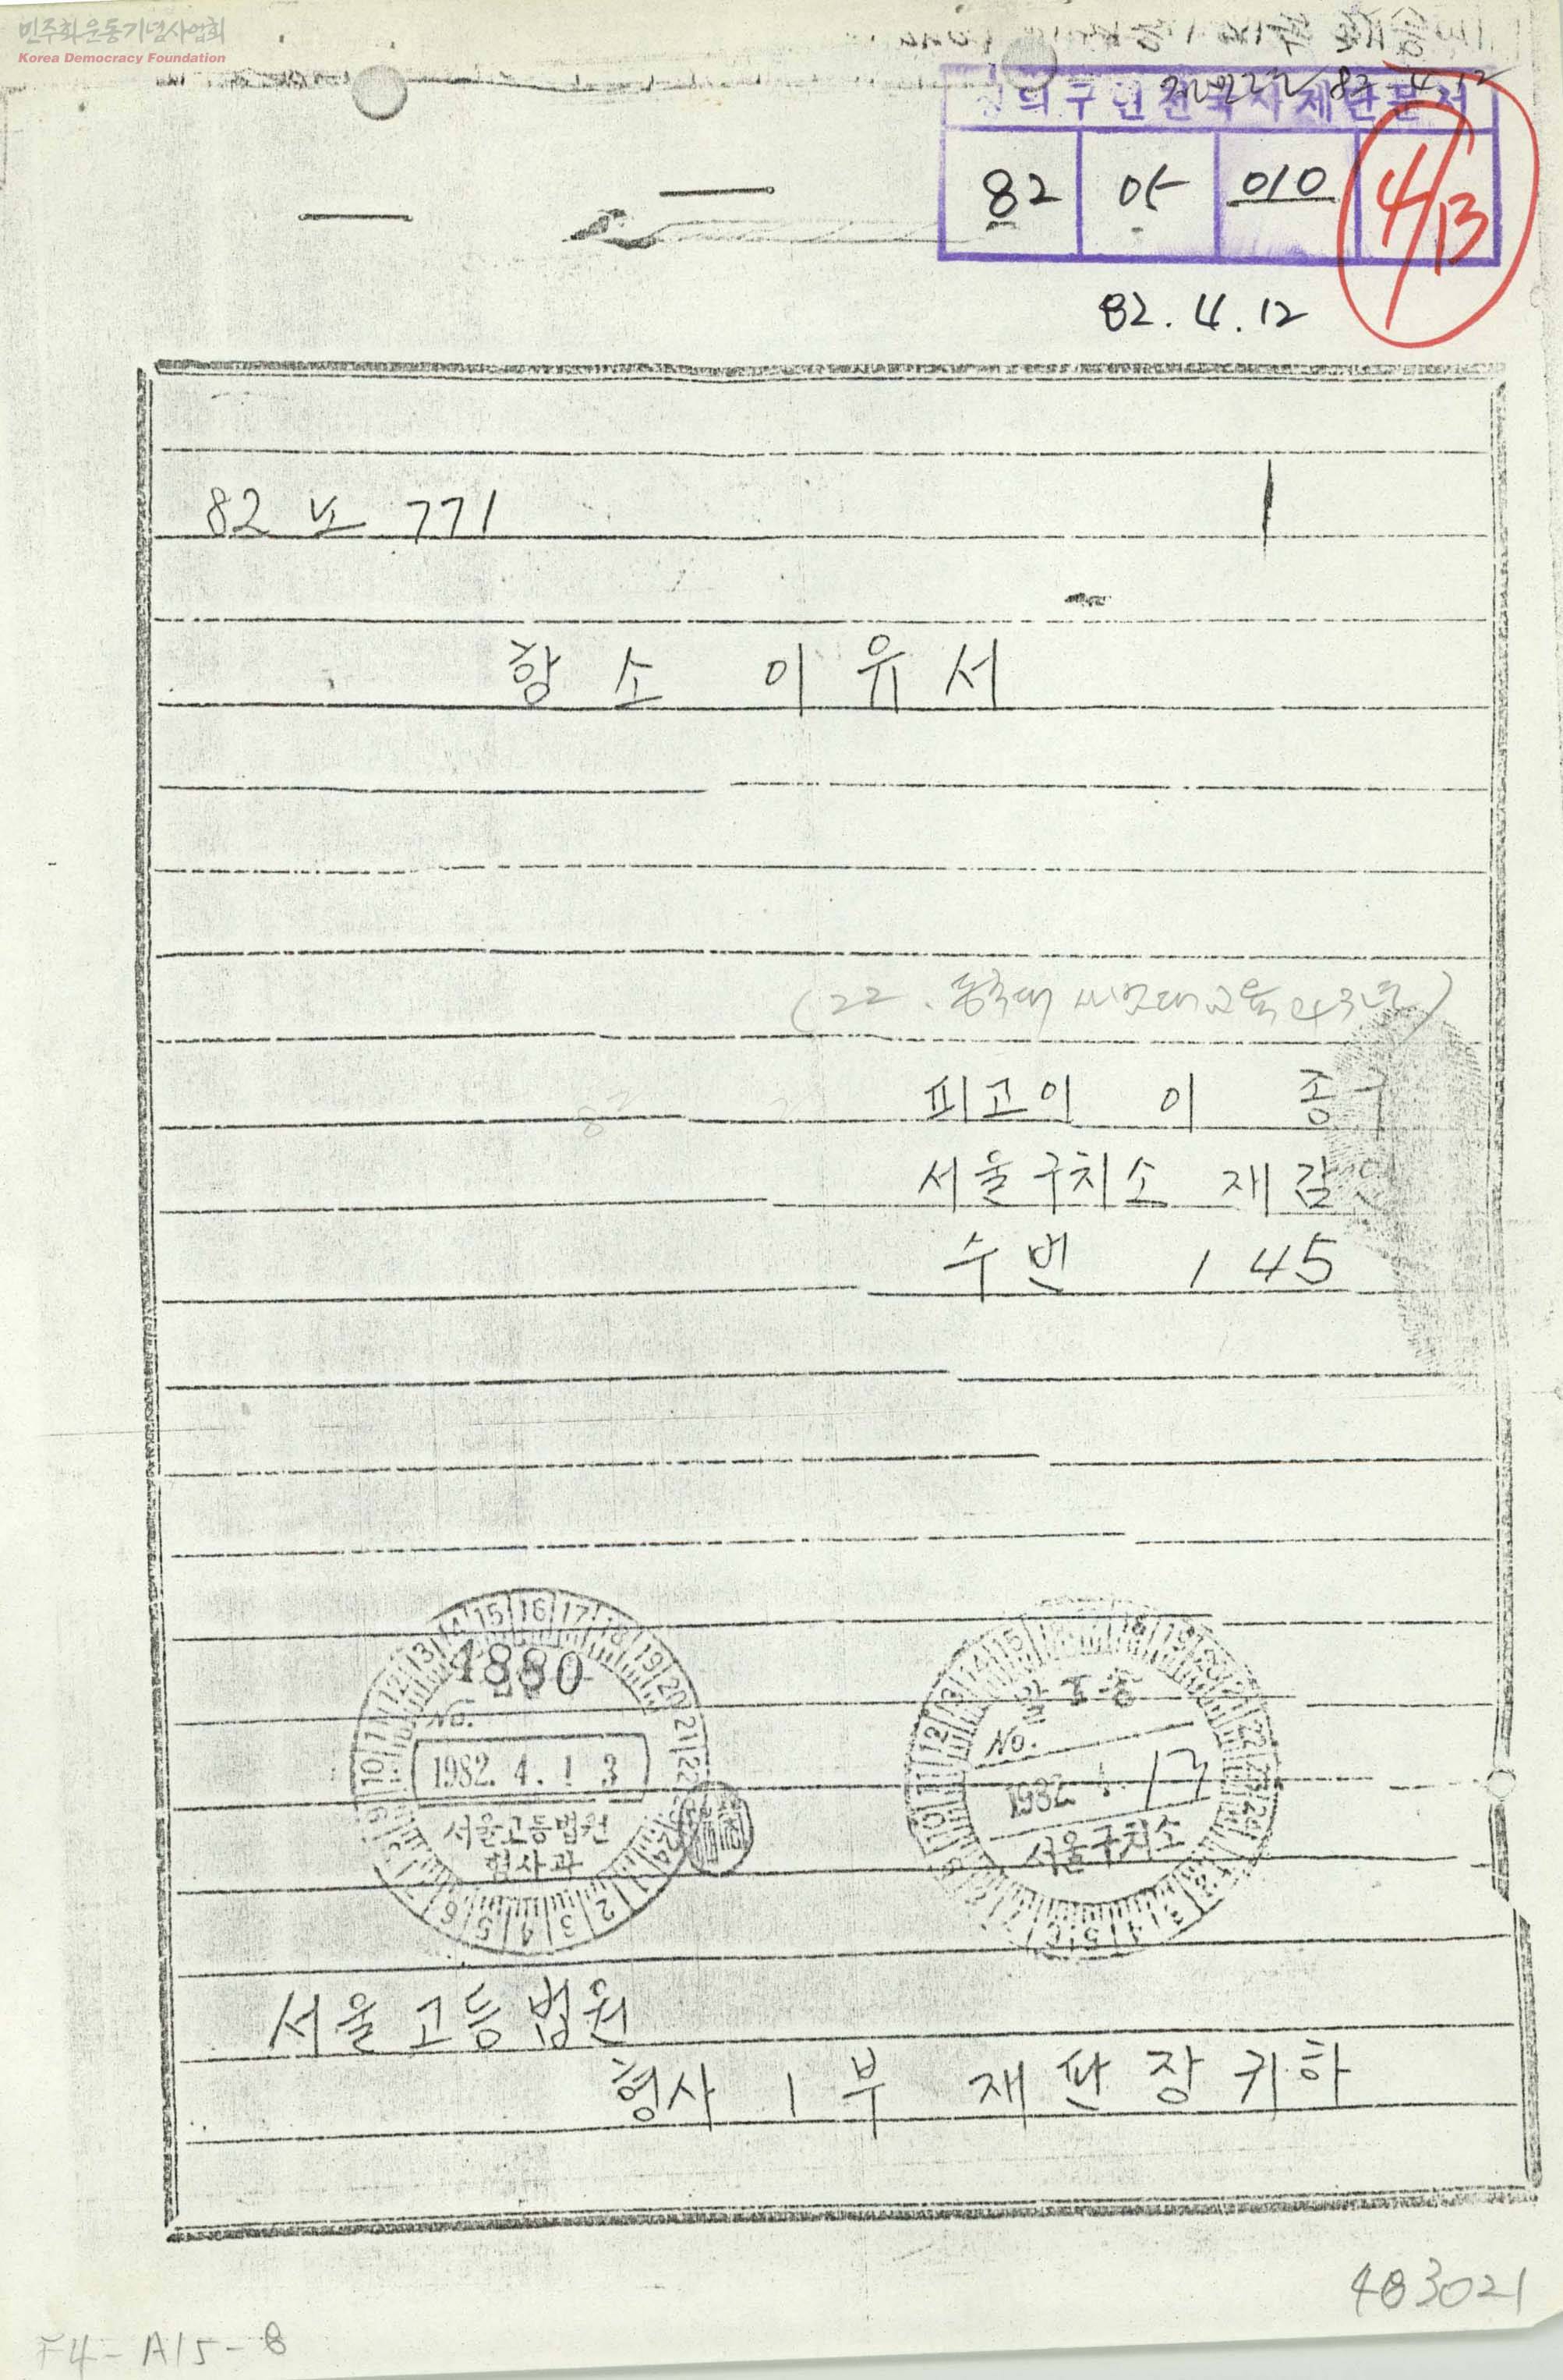 민주화운동기념사업회
Korea Democracy Foundation
정의구현전국사제단문서
82 05 010 4/13
82. 4. 12
82 노 771
항소 이유서
(22. 동국대 사범대 교육과 3년)
피고인 이 종구
서울구치소 재감인
수번 145
1880
No.
1982. 4. 13
서울고등법원
형사과
No.
1982. 4. 13
서울구치소
서울고등법원
형사 1부 재판장 귀하
483021
F4-A15-8